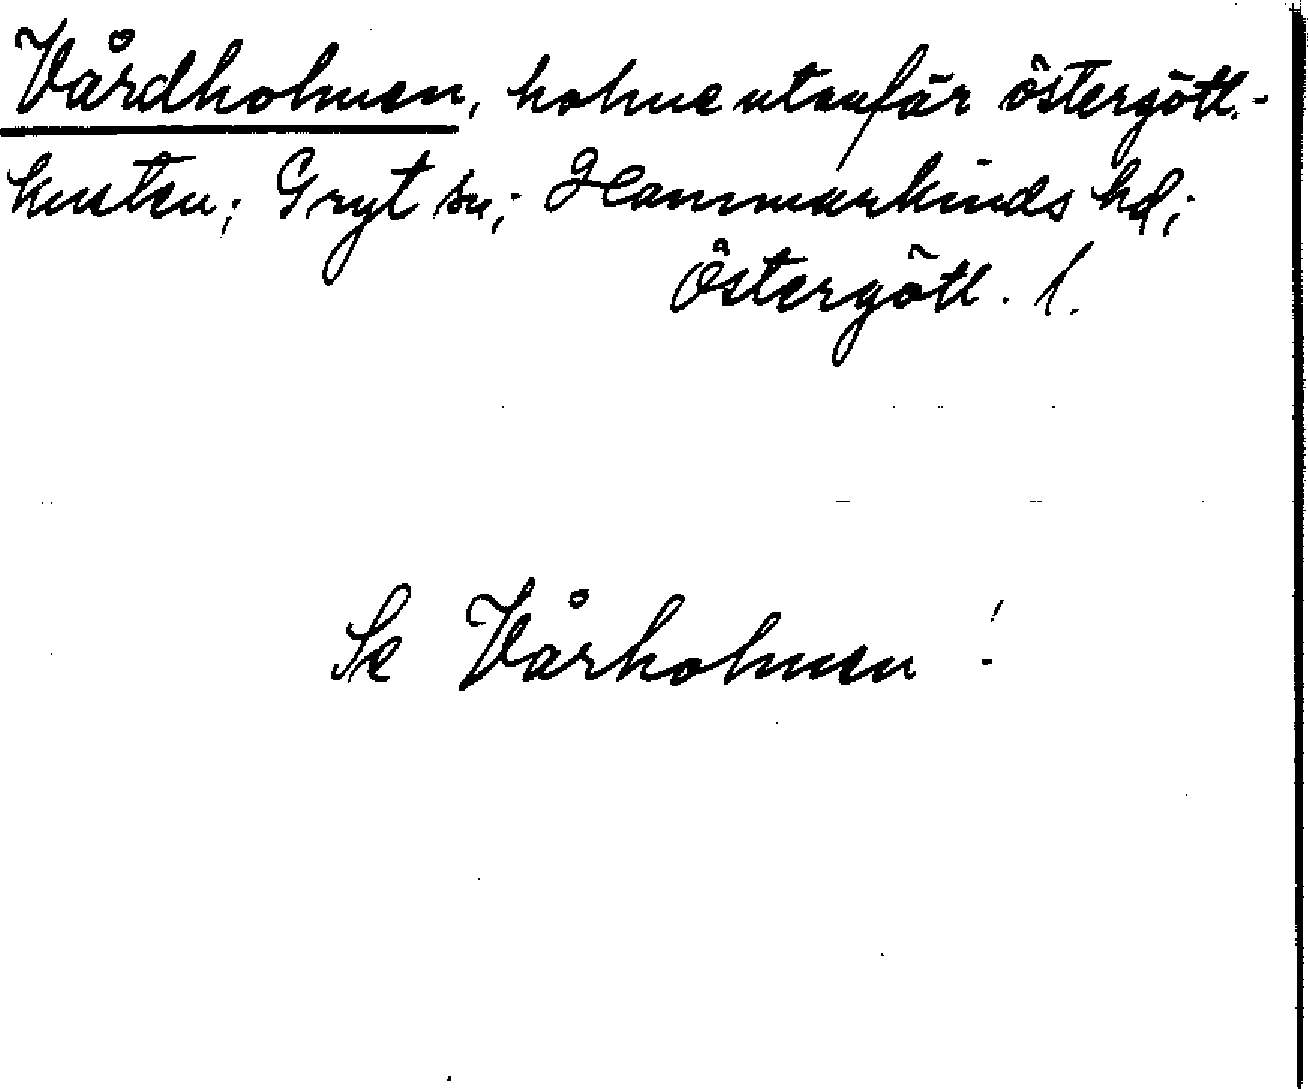 Vårdholmen, holme utanför östergötl.-
kusten; Gryt sn; Hammarkinds hd;
Östergötl. l.
Se Vårholmen!